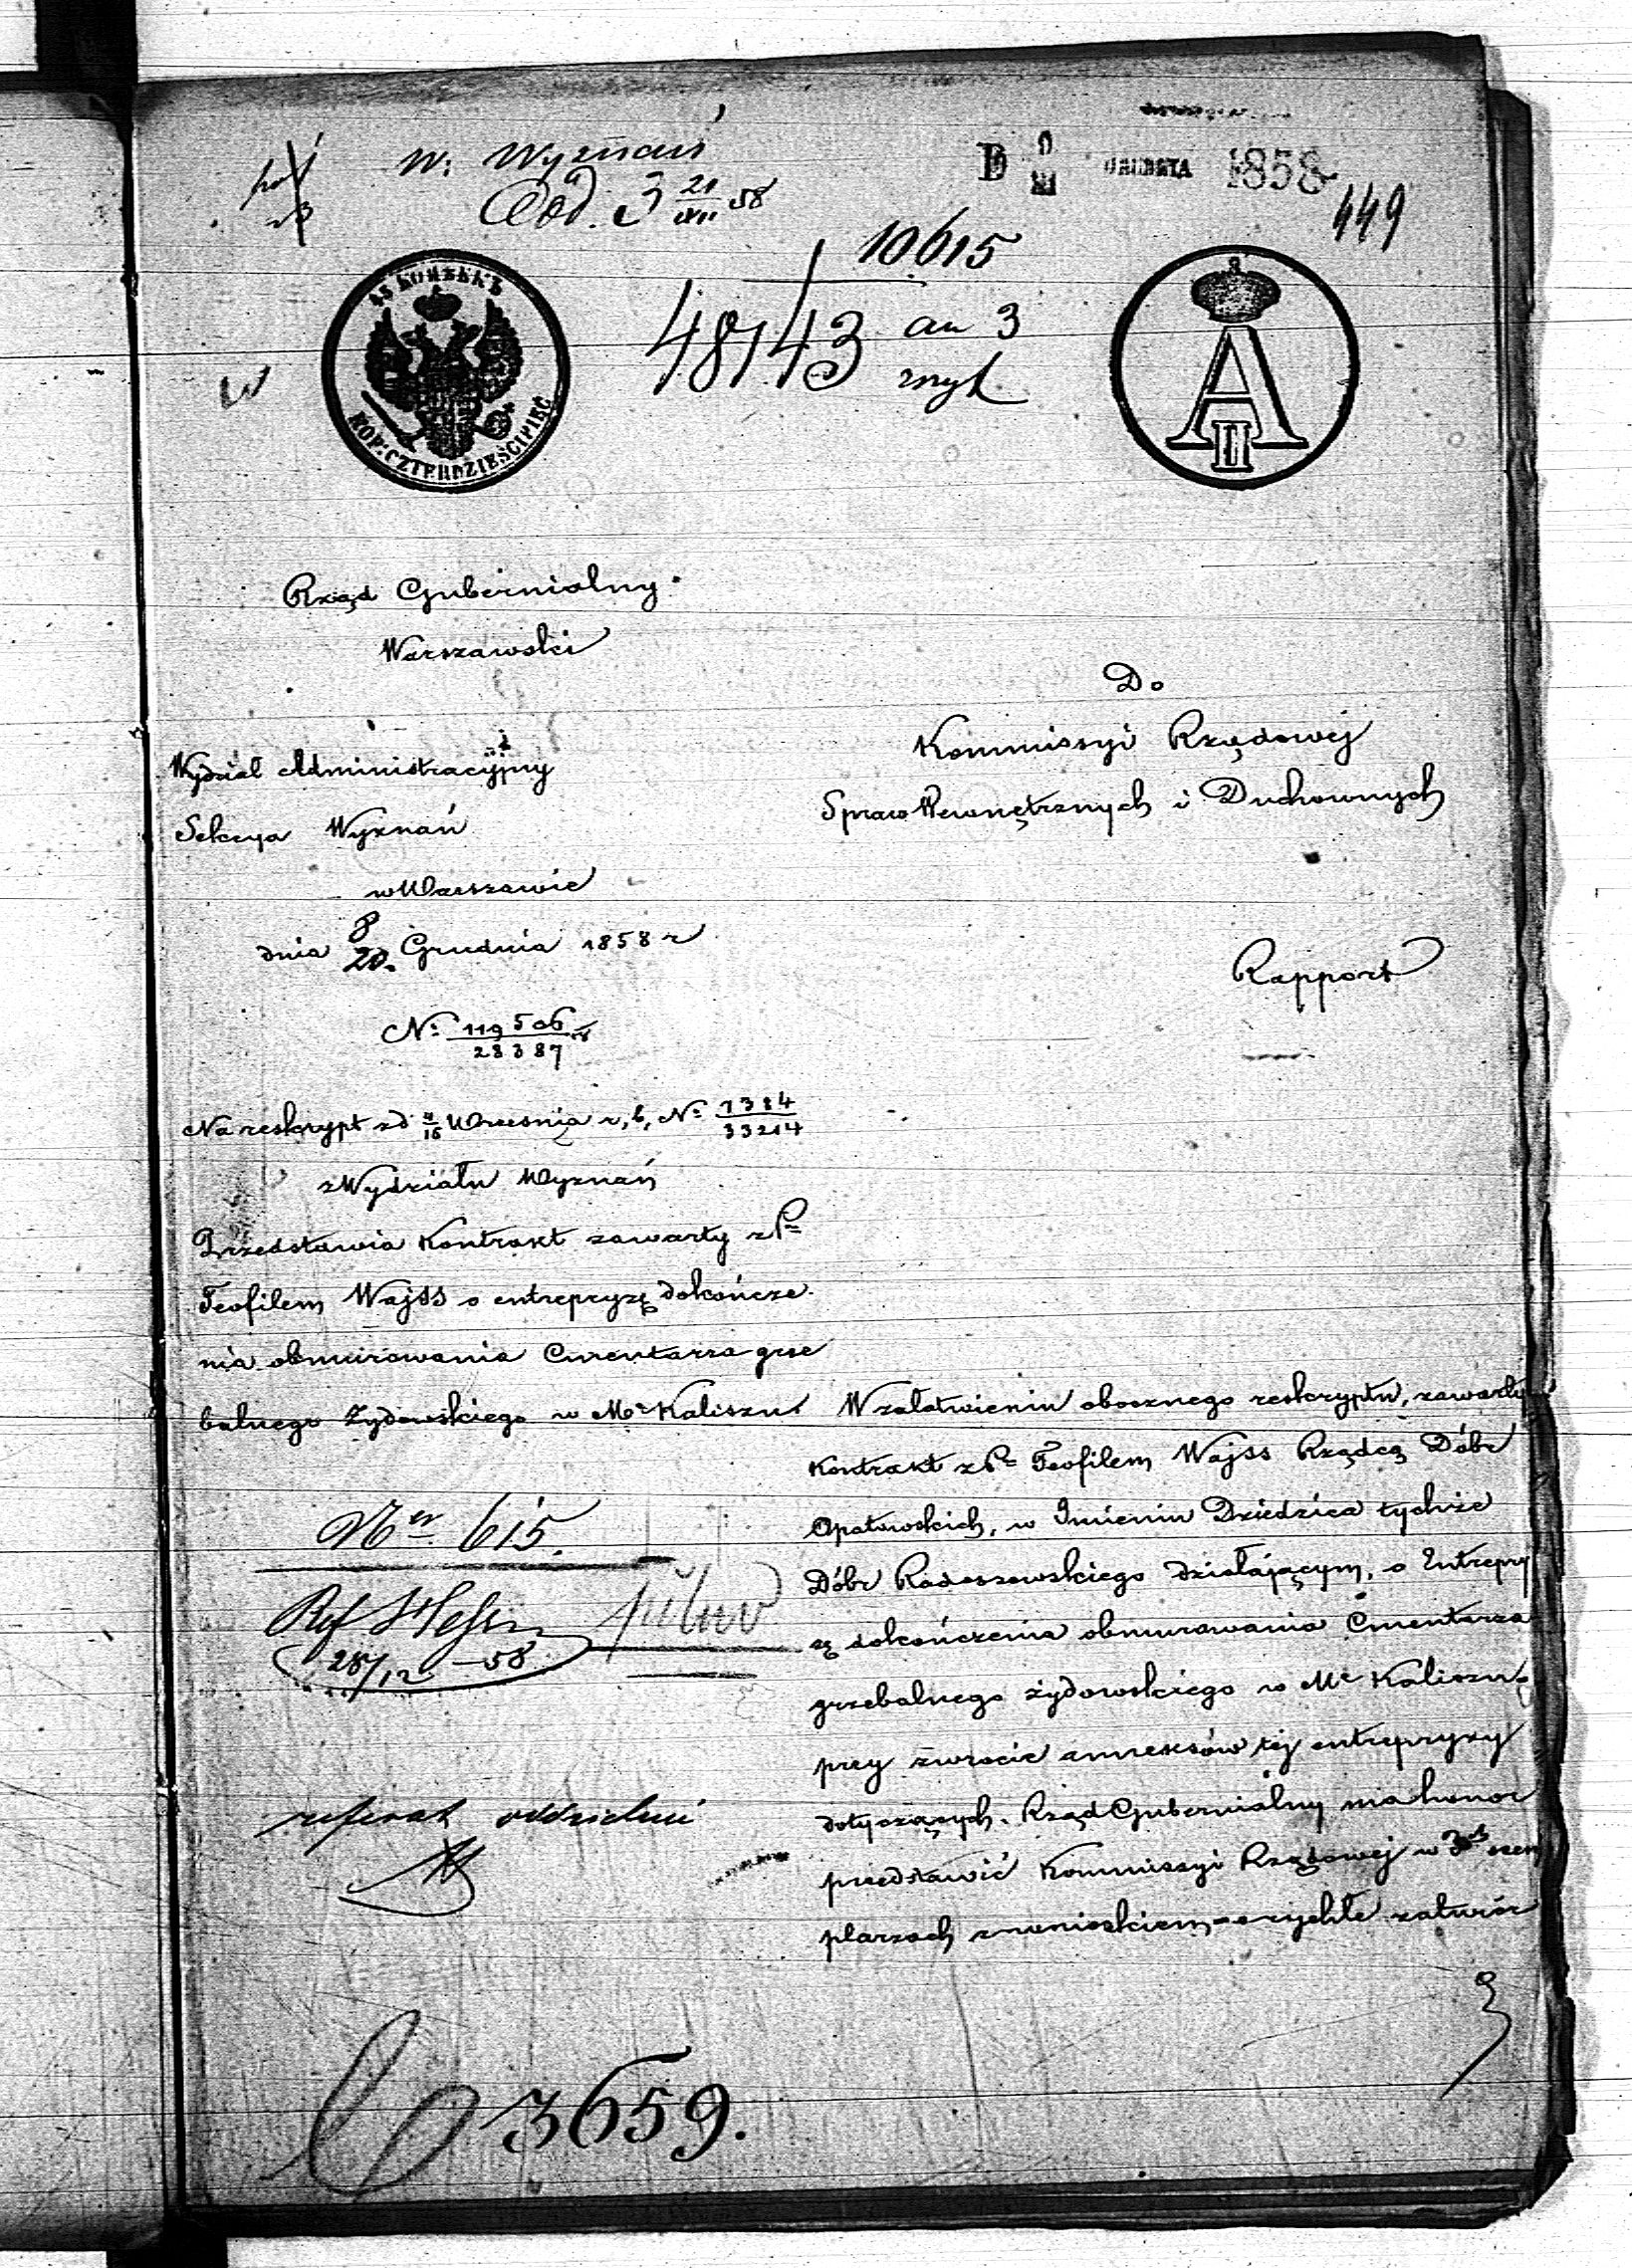 W. Wyznań
D 9/21 GRUDNIA 1858
449
10615
48143 an 3
45 КОПѢЕКЪ
KOP: CZTERDZIEŚCI PIĘĆ
A II
Rząd Gubernialny
Warszawski
Wydział Administracyjny
Sekcya Wyznań
w Warszawie
dnia 8/20 Grudnia 1858 r
No 119506/28387
Na reskrypt z d 4/16 Września r, b, No 7384/33214
z Wydziału Wyznań
Przedstawia Kontrakt zawarty z Pm
Teofilem Wajss o entrepryzę dokończe
nia obmurowania Cmentarza grze
balnego Żydowskiego w Mc Kaliszu.
Do
Kommissyi Rządowej
Spraw Wewnętrznych i Duchownych
Rapport
W załatwieniu obocznego reskryptu, zawarty
Kontrakt z Pm Teofilem Wajss Rządcą Dóbr
Opatowskich, w Imieniu Dziedzica tychże
Dóbr Radoszewskiego działającym, o Entrepry
zę dokończenia obmurowania Cmentarza
grzebalnego żydowskiego w Mc Kaliszu,
przy zwrocie anneksów tej entrepryzy
dotyczących. Rząd Gubernialny ma honor
przedstawić Kommissyi Rządowej w 3ch exem
plarzach z wnioskiem o rychłe zatwier
615.
Ref
28/12 - 58
referat oddzielni
3659.